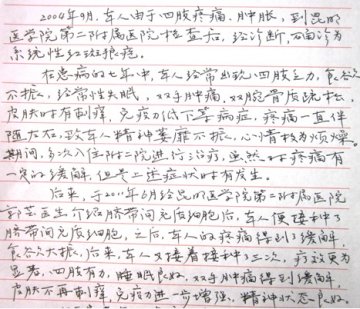 2004年9月,本人由于四肢疼痛、肿胀,到昆明
医学院第二附属医院检查后,经诊断,确诊为
系统性红斑狼疮。
在患病的七年中,本人经常出现四肢乏力,食欲
不振,经常性失眠,双手肿痛,双腕骨质疏松,
皮肤时有刺痒,免疫力低下等病症,疼痛一直伴
随左右,致本人精神萎靡不振,心情极为烦燥。
期间,多次入住附二院进行治疗,虽然对疼痛有
一定的缓解,但是上述症状时有发生。
后来,于2011年6月经昆明医学院第二附属医院
医生介绍脐带间充质细胞后,本人便接种了
脐带间充质细胞,之后,本人的疼痛得到了缓解,
食欲大振,后来,本人又接着接种了二次,疗效更为
显著,四肢有力,睡眠良好,双手肿痛得到缓解,
皮肤不再刺痒,免疫力进一步增强,精神状态良好。